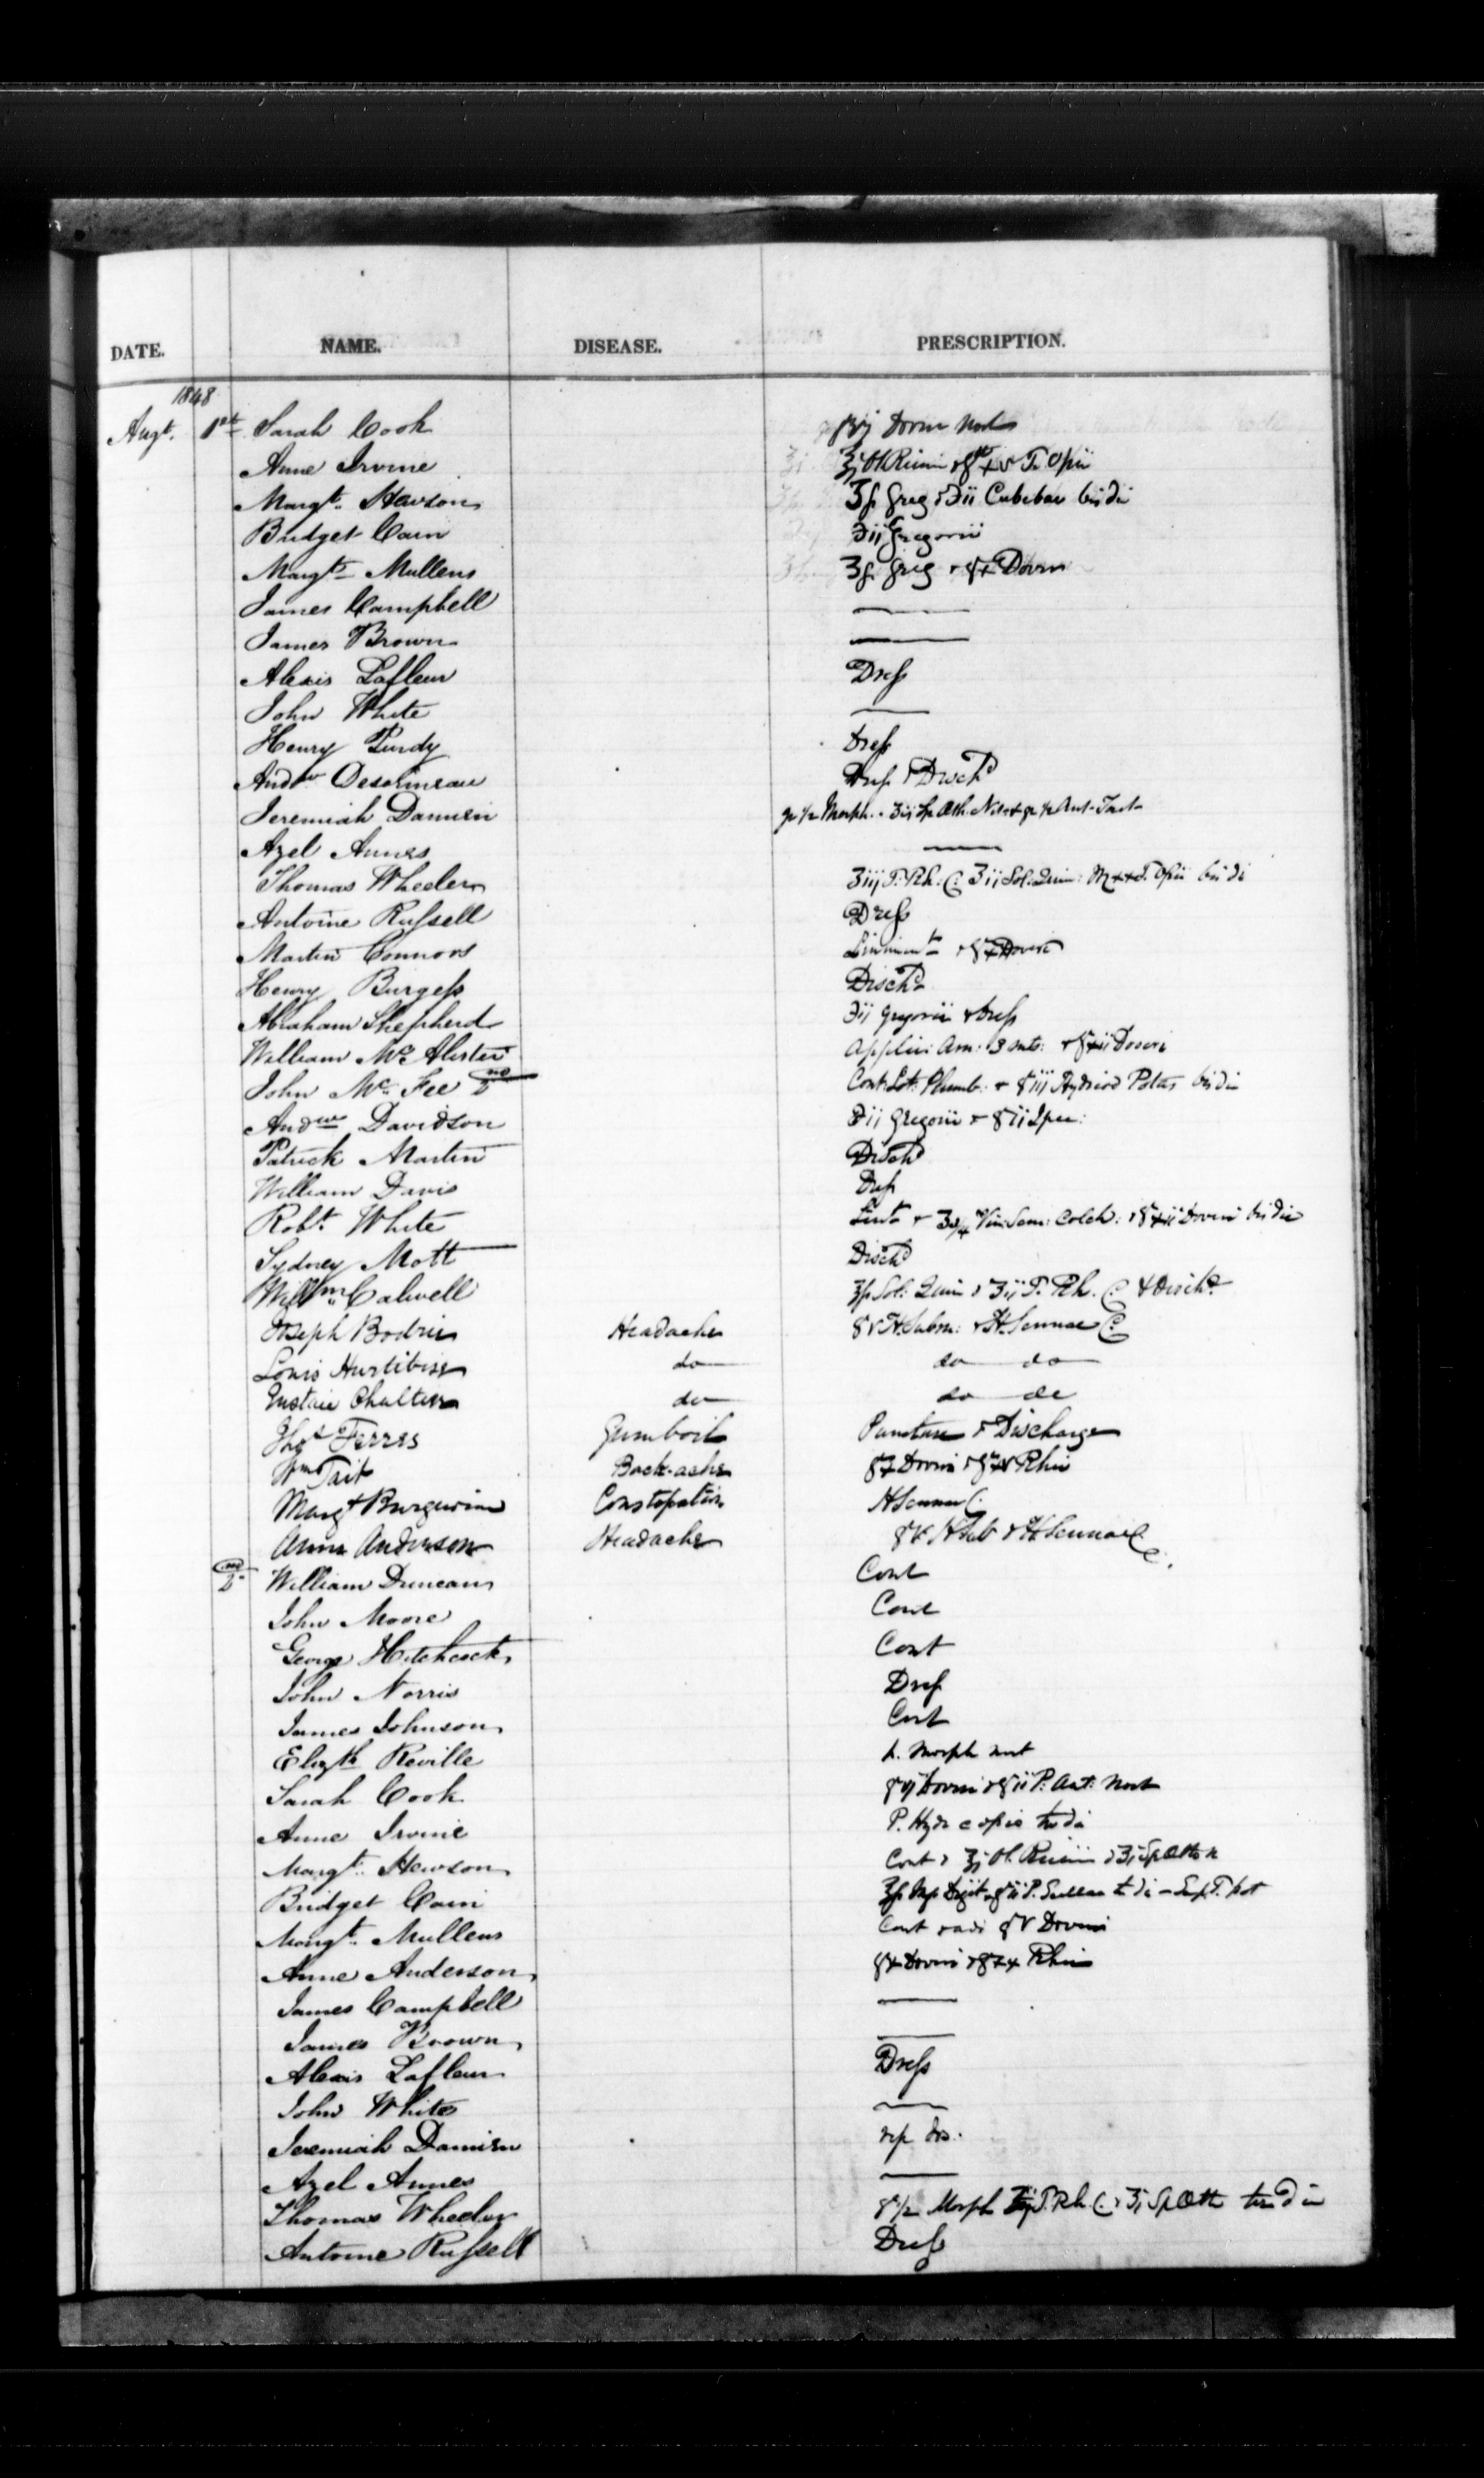 DATE. NAME. DISEASE. PRESCRIPTION.
1848
Augt. 1st Sarah Cook Doveri Nocte
Anne Irvine ʒj Ol Ricini & gtt xv T. Opii
Margt. Hewson ʒſs Greg & ℈ii Cubebae bis di
Bridget Cain ℈ij Gregorii
Margt. Mullens ʒſs Greg & gr x Doveri
James Campbell —
James Brown —
Alexis Lafleur Dreſs
John White —
Henry Purdy Dreſs
Andw Deslimeau Dreſs & Dischd
Jeremiah Damien gr ½ Morph. ʒij Sp Æth. Nit & gr ½ Ant. Tart
Azel Annes —
Thomas Wheeler ʒiij T. Rh. C. ʒij Sol. Quin: ♏xx T. Opii bis di
Antoine Ruſsell Dreſs
Martin Connors Linimentm & gr x Doveri
Henry Burgeſs Dischd
Abraham Shepherd ℈ij Gregorii & Dreſs
William McAlister & gr xii Doveri
John McFee 2nd Cont. Lot. Plumb: & gr iij Hydriod Potas bis di
Andw Davidson ℈ij Gregorii & gr ij Ipec:
Patrick Martin Dischd
William Davis Dreſs
Robt. White Vin: Sem: Colch: & gr xii Doveri bis die
Sydney Mott Dischd
Willm Calwell ʒſs Sol: Quin & ʒij T. Rh. C. & Dischd
Joseph Bodrie Headache gr v H. Subm: & H. Sennae C.
Louis Hurtibise do do do
Eustaie Chalten do do do
Thos Ferres Gumboil Puncture & Discharge
Wm Tait Back-ache gr x Doveri & gr xv Rhei
Margt Burguoine Constopation H Sennae C.
Anne Anderson Headache gr v H Sub & H Sennae C.
2nd William Duncan Cont
John Moore Cont
George Hitchcock Cont
John Norris Dreſs
James Johnson Cont
Elizth Reville h. Morph noct
Sarah Cook Doveri & gr ii P. Ant: Noct
Anne Irvine P. Hydr c opio ter di
Margt. Hewson Cont & ʒj Ol. Ricini & ʒj Sp Æth n
Bridget Cain ʒſs Digit & gr ii P. Scillae t di
Margt. Mullens Cont gr v Doveri
Anne Anderson gr x Doveri & gr xx Rhei
James Campbell —
James Brown —
Alexis Lafleur Dreſs
John White —
Jeremiah Damien rep dos.
Azel Annes —
Thomas Wheeler gr ½ Morph T. Rh. C. & ʒj Sp Æth ter d in
Antoine Ruſsell Dreſs